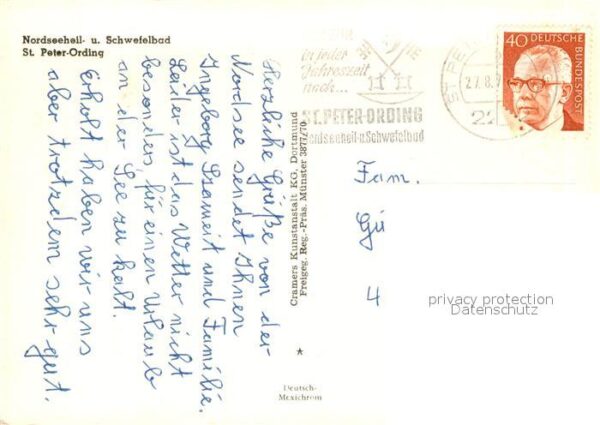 Nordseeheil- u. Schwefelbad
St. Peter-Ording
Herzliche Grüße von der
Nordsee sendet Ihnen
Ingeborg Szameit und Familie.
Leider ist das Wetter nicht
besonders, für einen Urlaub
an der See zu kalt.
Erholt haben wir uns
aber trotzdem sehr gut.
Cramers Kunstanstalt KG, Dortmund
Freigeg. Reg.-Präs. Münster 3877/70
Deutsch-
Mexichrom
in jeder
Jahreszeit
nach...
ST. PETER-ORDING
Nordseeheil-u.Schwefelbad
27.8.7
22
40 DEUTSCHE BUNDESPOST
Fam.
Gü
4
privacy protection
Datenschutz